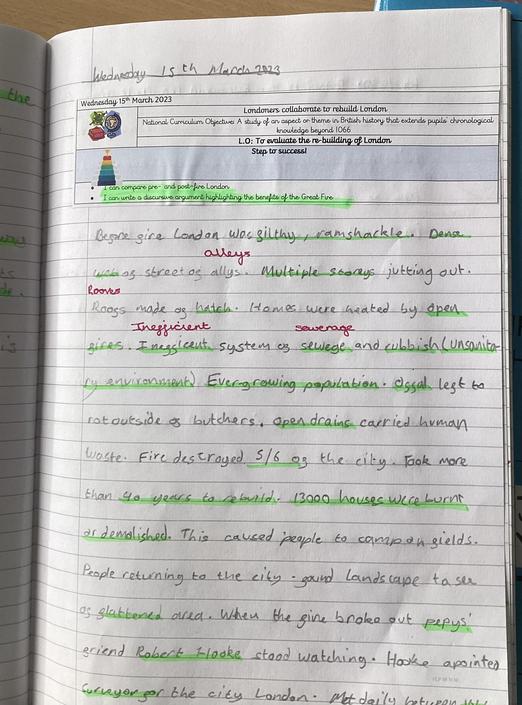 the
Wednesday 15th March 2023
Wednesday 15th March 2023
Londoners collaborate to rebuild London
National Curriculum Objective: A study of an aspect or theme in British history that extends pupils' chronological
knowledge beyond 1066
L.O: To evaluate the re-building of London
Step to success!
I can compare pre- and post-fire London
I can write a discursive argument highlighting the benefits of the Great Fire
Before fire London was filthy, ramshackle. Dense
alleys
web of street of allys. Multiple storeys jutting out.
Rooves
Roofs made of hatch. Homes were heated by open
Inefficient sewerage
fires. Inefficent system of sewege and rubbish (unsanita-
ry environment) Ever-growing population. Offal left to
rot outside of butchers, open drains carried human
waste. Fire destroyed 5/6 of the city. Took more
than 40 years to rebuild. 13000 houses were burnt
or demolished. This caused people to camp on fields.
People returning to the city - found landscape to see
of flattened area. When the fire broke out pepys'
friend Robert Hooke stood watching. Hooke apointed
Surveyor for the city London. Met daily between